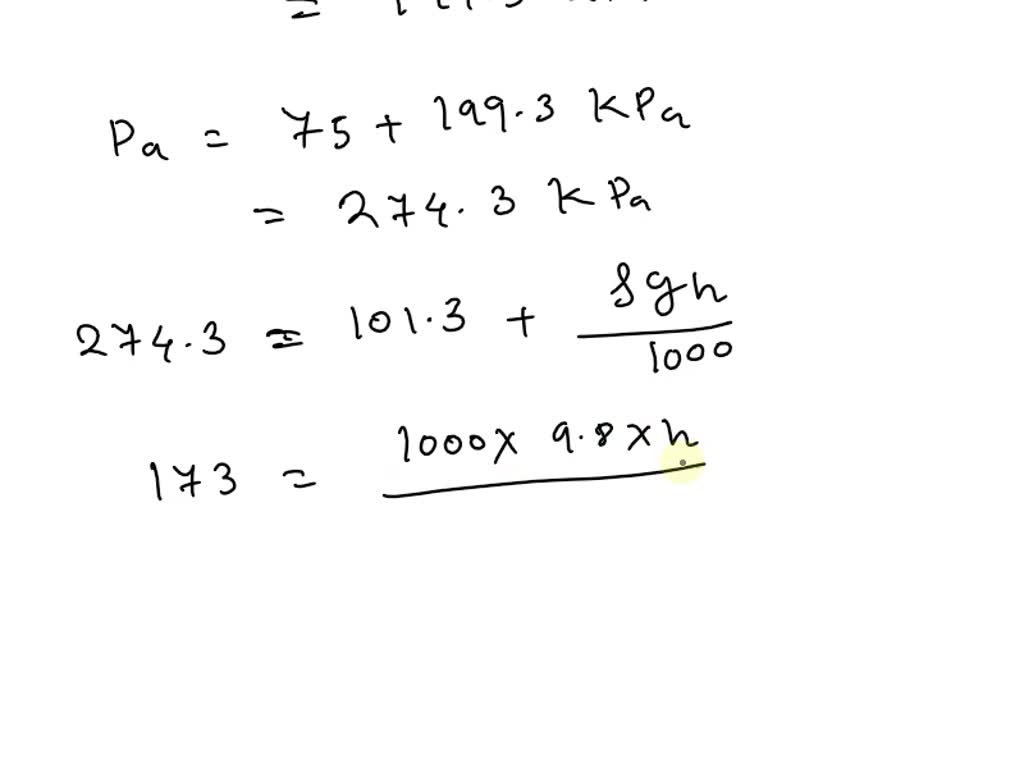 =
Pa = 75 + 199.3 KPa
= 274.3 KPa
274.3 = 101.3 + ρgh
1000
173 = 1000 x 9.8 x h